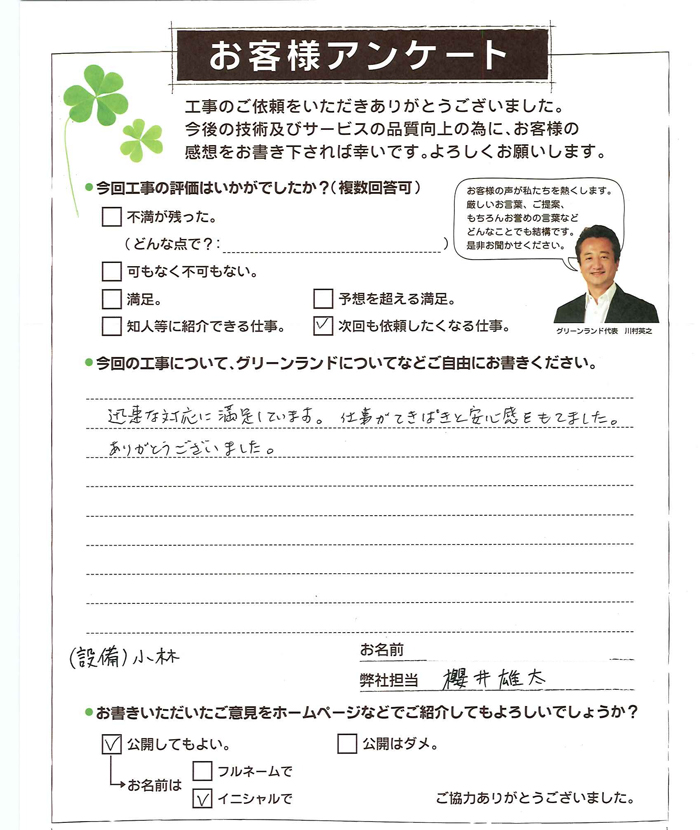 お客様アンケート
工事のご依頼をいただきありがとうございました。
今後の技術及びサービスの品質向上の為に、お客様の
感想をお書き下されば幸いです。よろしくお願いします。
今回工事の評価はいかがでしたか？(複数回答可)
不満が残った。
(どんな点で？: )
可もなく不可もない。
満足。
予想を超える満足。
知人等に紹介できる仕事。
次回も依頼したくなる仕事。
お客様の声が私たちを熱くします。
厳しいお言葉、ご提案、
もちろんお誉めの言葉など
どんなことでも結構です。
是非お聞かせください。
グリーンランド代表 川村英之
今回の工事について、グリーンランドについてなどご自由にお書きください。
迅速な対応に満足しています。 仕事がてきぱきと安心感をもてました。
ありがとうございました。
(設備)小林
お名前
弊社担当 櫻井雄太
お書きいただいたご意見をホームページなどでご紹介してもよろしいでしょうか？
公開してもよい。
公開はダメ。
お名前は
フルネームで
イニシャルで
ご協力ありがとうございました。